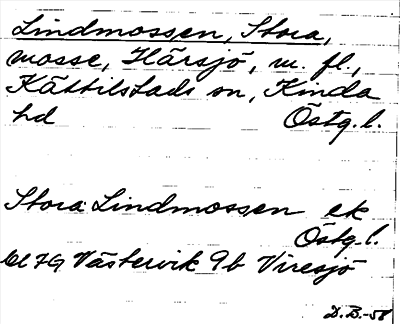 Lindmossen, Stora,
mosse, Härsjö, m. fl.,
Kättilstads sn, Kinda
hd Östg.l.
Stora Lindmossen ek
Östg.l.
Bl 7G Västervik 9b Viresjö
D.B.-58